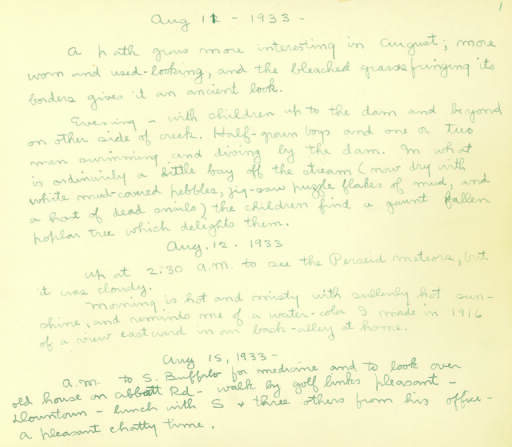 1
Aug 11 - 1933 -
A path grows more interesting in August; more
worn and used-looking, and the bleached grasses fringing its
borders gives it an ancient look.
Evening - with children up to the dam and beyond
on other side of creek. Half-grown boys and one or two
men swimming and diving by the dam. In what
is ordinarily a little bay off the stream (now dry with
white mud-caked pebbles, jig-saw puzzle flakes of mud, and
a host of dead snails) the children find a gaunt fallen
poplar tree which delights them.
Aug. 12 . 1933
up at 2:30 a.m. to see the Perseid meteors, but
it was cloudy.
Morning is hot and misty with sullenly hot sun-
shine, and reminds me of a water-color I made in 1916
of a view eastward in our back-alley at home.
Aug 15, 1933 -
a.m. to S. Buffalo for medicine and to look over
old house on abbott Rd - walk by golf links pleasant -
Downtown - lunch with S & three others from his office -
a pleasant chatty time.